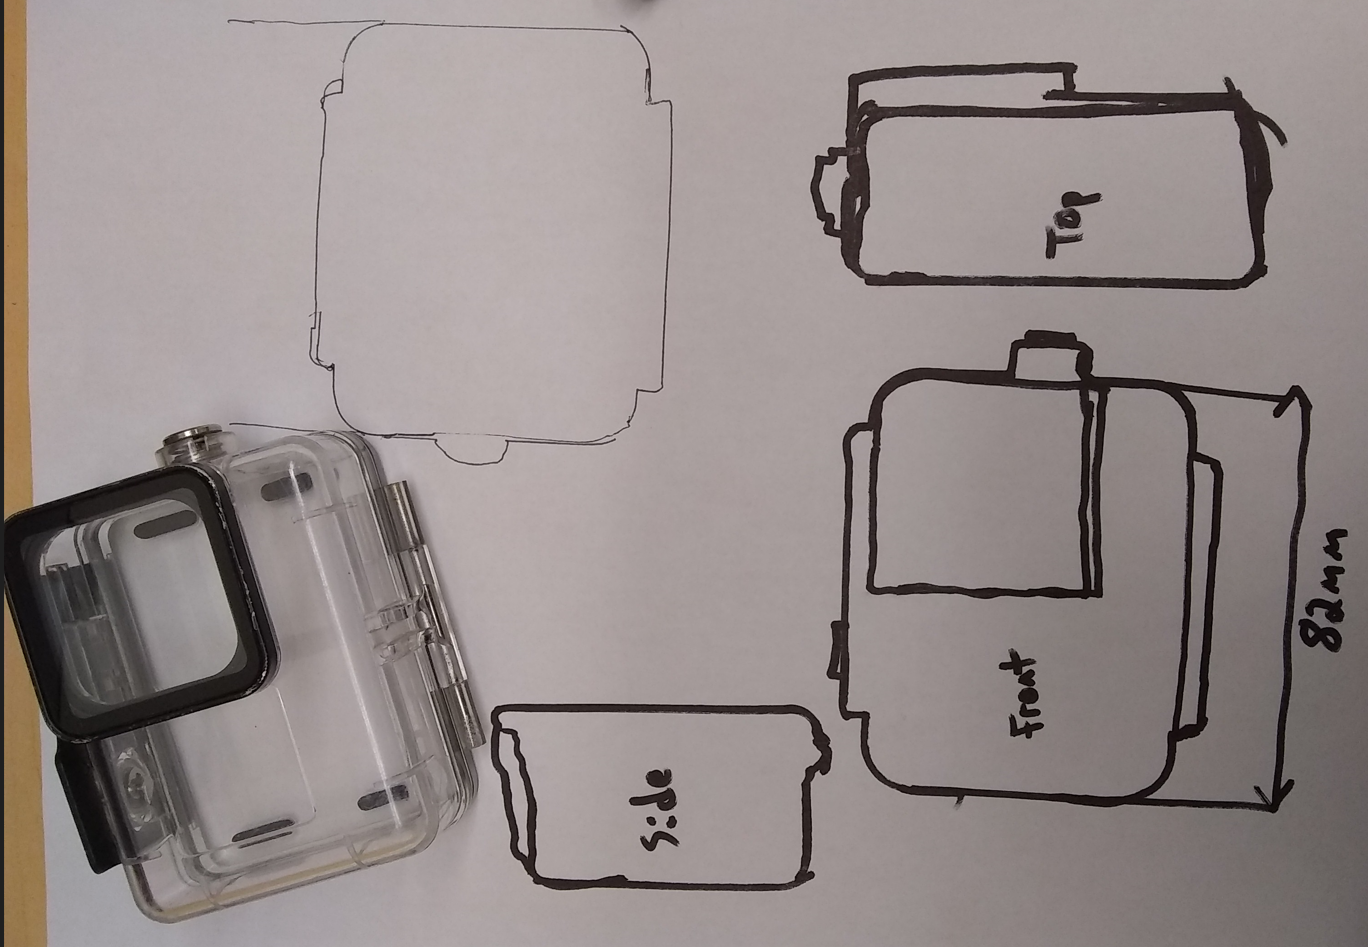 Top
Front
82mm
Side